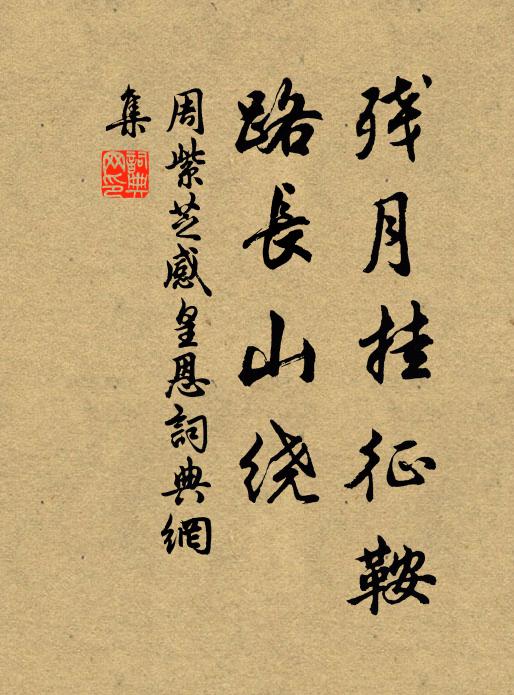 残月挂征鞍
路長山绕
周紫芝感皇恩詞典網
集
詞典
网印